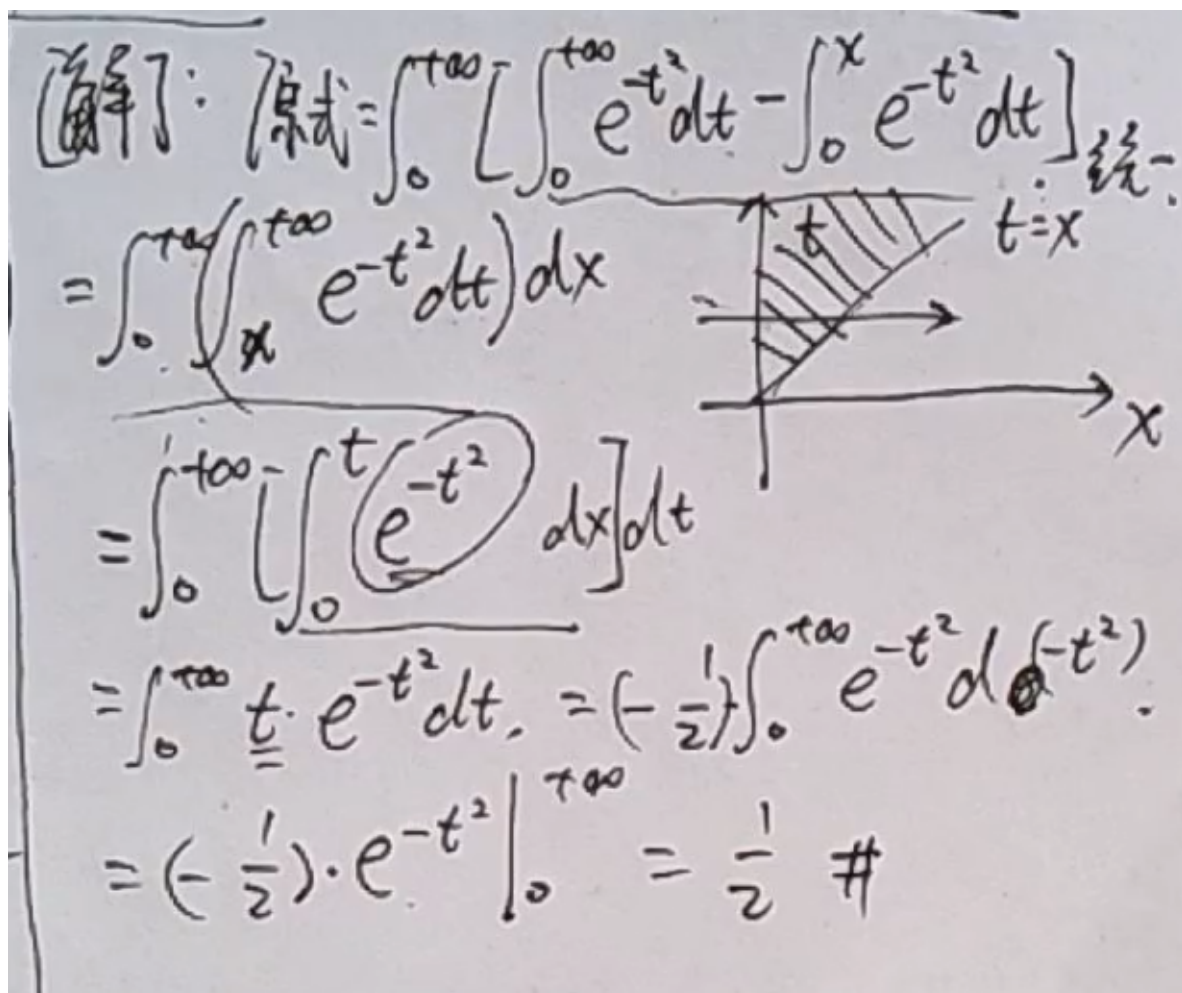 [解]: 原式=∫₀^{+∞}[∫₀^{+∞}e^{-t²}dt-∫₀^x e^{-t²}dt]. 统一.
=∫₀^{+∞}(∫_x^{+∞}e^{-t²}dt)dx
t t=x
x
=∫₀^{+∞}[∫₀^t e^{-t²}dx]dt
=∫₀^{+∞}t·e^{-t²}dt. =(-1/2)∫₀^{+∞}e^{-t²}d(-t²).
=(-1/2)·e^{-t²}|₀^{+∞}=1/2 #